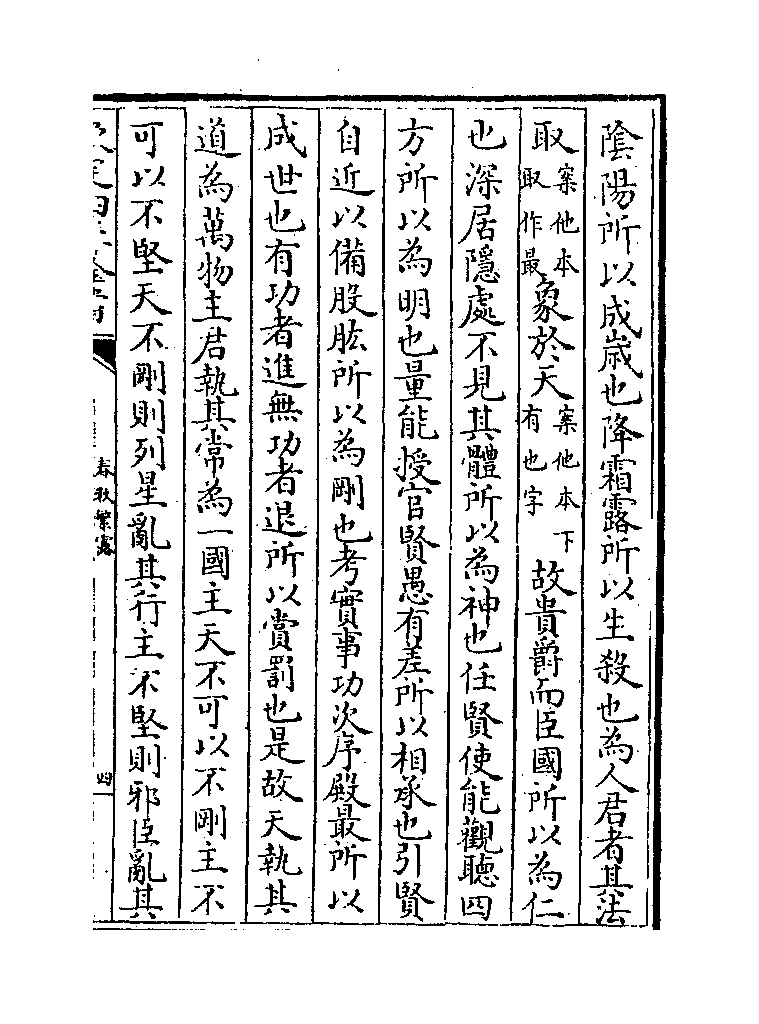 陰陽所以成嵗也降霜露所以生殺也為人君者其法
取案他本取作最象於天案他本下有也字故貴爵而臣國所以為仁
也深居隱處不見其體所以為神也任賢使能觀聽四
方所以為明也量能授官賢愚有差所以相承也引賢
自近以備股肱所以為剛也考實事功次序殿最所以
成世也有功者進無功者退所以賞罰也是故天執其
道為萬物主君執其常為一國主天不可以不剛主不
可以不堅天不剛則列星亂其行主不堅則邪臣亂其
春秋繁露
四